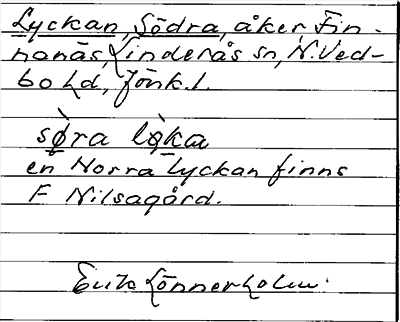 Lyckan, Södra, åker Fin-
nanäs, Linderås sn, N. Ved-
bo hd, Jönk. l.
sø̀ra lø̀ka
en Norra Lyckan finns
F Nilsagård.
Erik Lönnerholm.